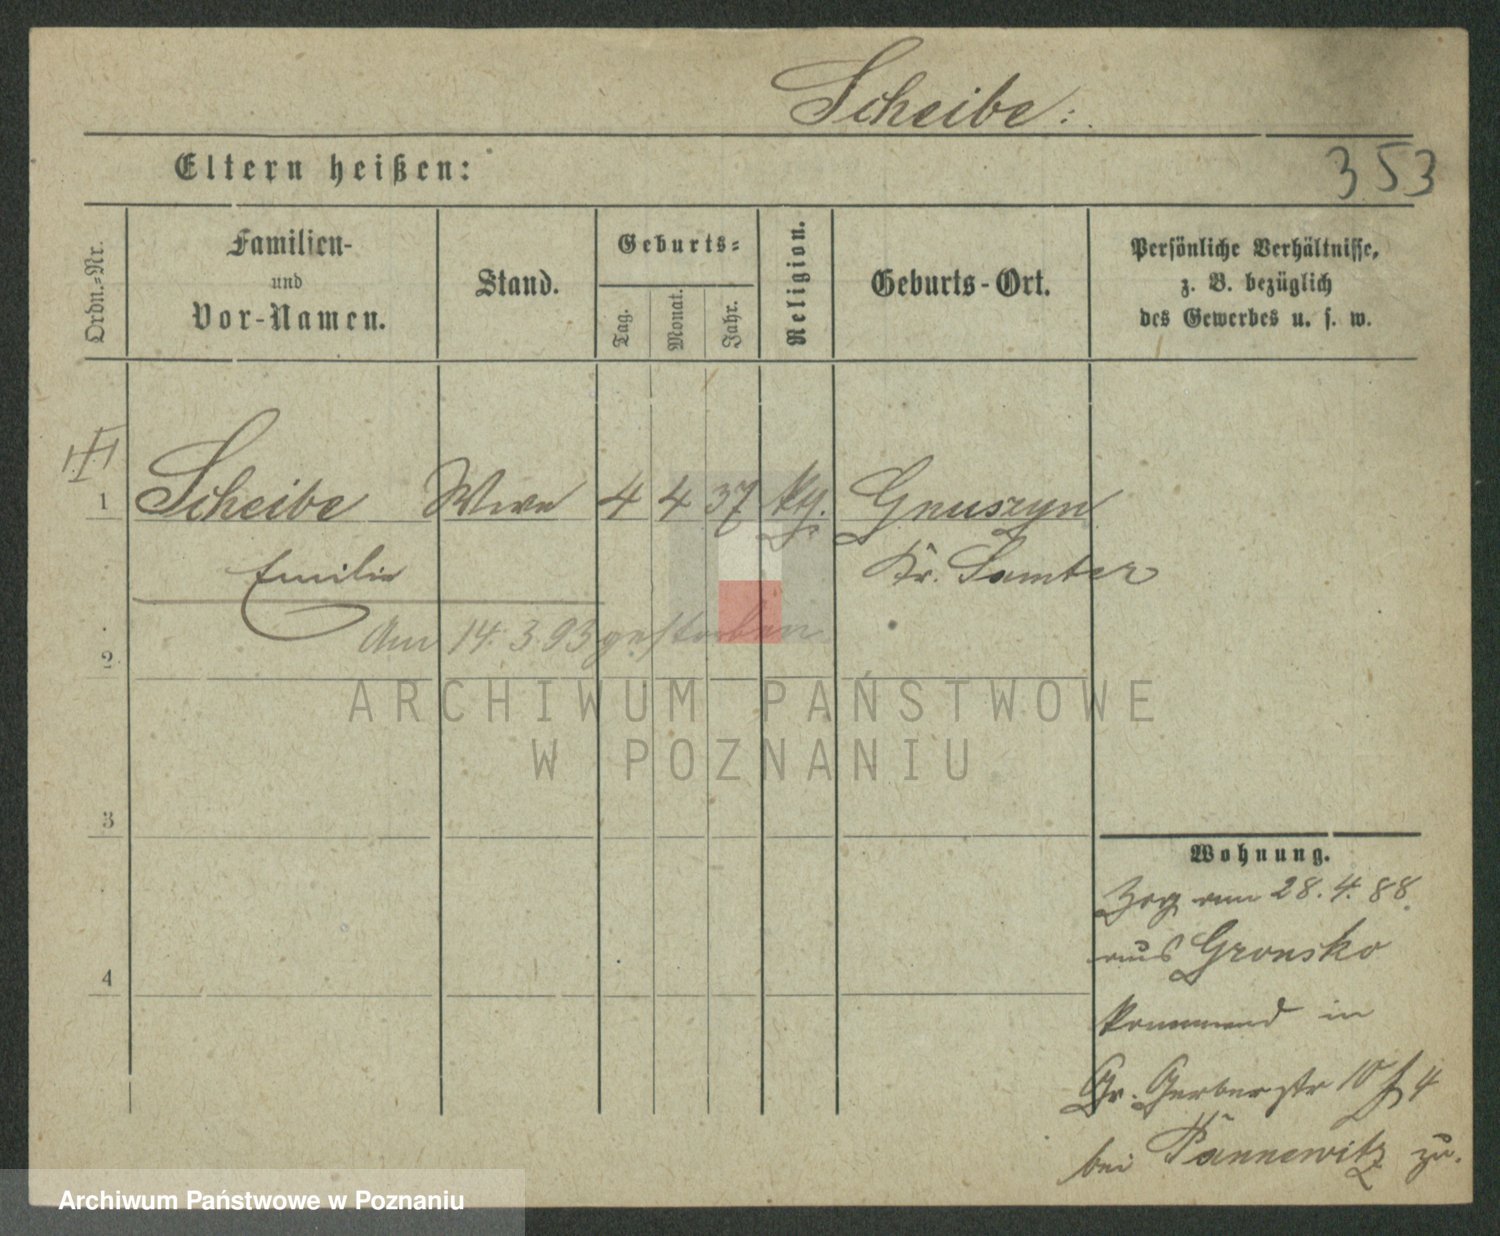 Scheibe.
Eltern heißen:
353
Ordn.-Nr.
Familien-
und
Vor-Namen.
Stand.
Geburts-
Tag.
Monat.
Jahr.
Religion.
Geburts-Ort.
Persönliche Verhältnisse,
z. B. bezüglich
des Gewerbes u. s. w.
1 Scheibe Wwe 4 4 37 kth. Gnuszyn
Emilie Kr. Samter
Am 14. 3. 93 gestorben
2
ARCHIWUM PAŃSTWOWE
W POZNANIU
3
4
Wohnung.
Zog am 28. 4. 88.
aus Gronsko
kommend in
Gr. Gerberstr 10 4
bei Pannewitz zu.
Archiwum Państwowe w Poznaniu